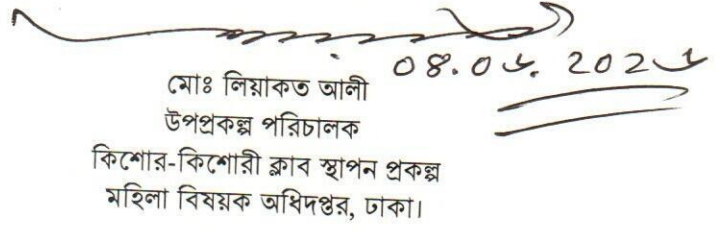 মোঃ লিয়াকত আলী
উপপ্রকল্প পরিচালক
কিশোর-কিশোরী ক্লাব স্থাপন প্রকল্প
মহিলা বিষয়ক অধিদপ্তর, ঢাকা।